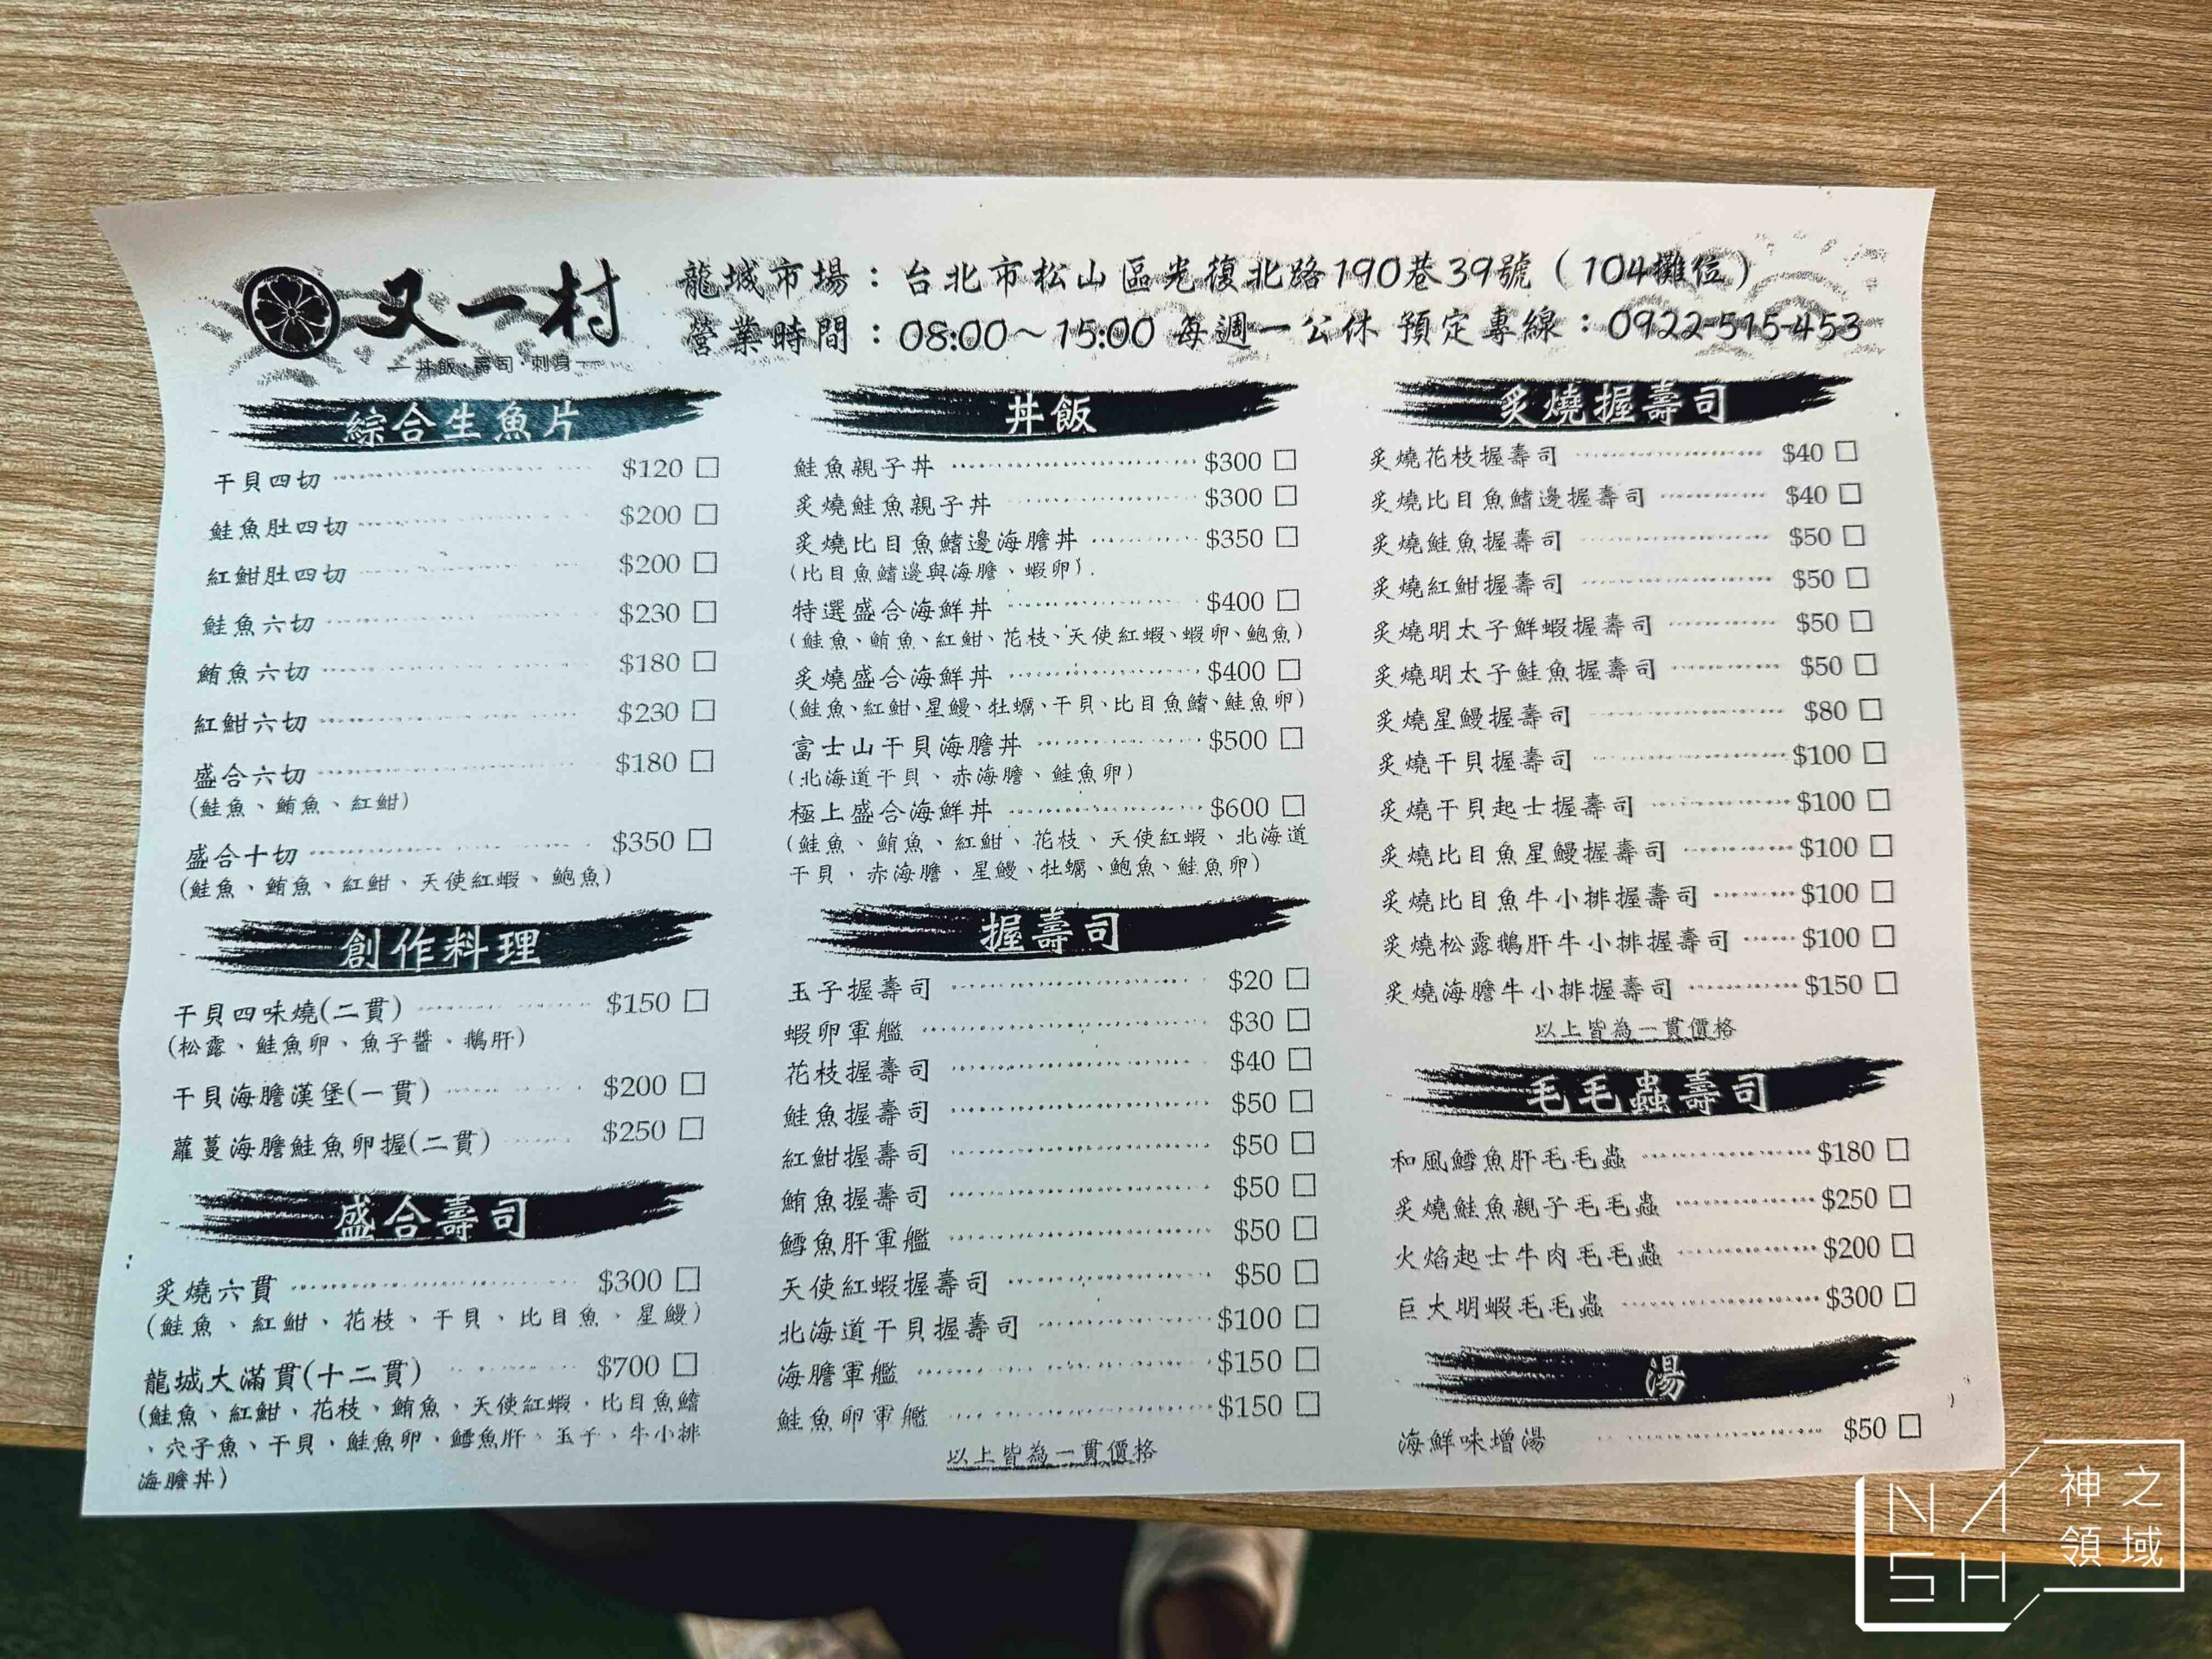 又一村
丼飯·壽司·刺身
龍城市場：台北市松山區光復北路190巷39號（104攤位）
營業時間：08:00～15:00 每週一公休 預定專線：0922-515-453
綜合生魚片
干貝四切 $120 □
鮭魚肚四切 $200 □
紅魽肚四切 $200 □
鮭魚六切 $230 □
鮪魚六切 $180 □
紅魽六切 $230 □
盛合六切 $180 □
(鮭魚、鮪魚、紅魽)
盛合十切 $350 □
(鮭魚、鮪魚、紅魽、天使紅蝦、鮑魚)
創作料理
干貝四味燒(二貫) $150 □
(松露、鮭魚卵、魚子醬、鵝肝)
干貝海膽漢堡(一貫) $200 □
蘿蔓海膽鮭魚卵握(二貫) $250 □
盛合壽司
炙燒六貫 $300 □
(鮭魚、紅魽、花枝、干貝、比目魚、星鰻)
龍城大滿貫(十二貫) $700 □
(鮭魚、紅魽、花枝、鮪魚、天使紅蝦、比目魚鰭
、穴子魚、干貝、鮭魚卵、鱈魚肝、玉子、牛小排
海膽丼)
丼飯
鮭魚親子丼 $300 □
炙燒鮭魚親子丼 $300 □
炙燒比目魚鰭邊海膽丼 $350 □
(比目魚鰭邊與海膽、蝦卵)
特選盛合海鮮丼 $400 □
(鮭魚、鮪魚、紅魽、花枝、天使紅蝦、蝦卵、鮑魚)
炙燒盛合海鮮丼 $400 □
(鮭魚、紅魽、星鰻、牡蠣、干貝、比目魚鰭、鮭魚卵)
富士山干貝海膽丼 $500 □
(北海道干貝、赤海膽、鮭魚卵)
極上盛合海鮮丼 $600 □
(鮭魚、鮪魚、紅魽、花枝、天使紅蝦、北海道
干貝、赤海膽、星鰻、牡蠣、鮑魚、鮭魚卵)
握壽司
玉子握壽司 $20 □
蝦卵軍艦 $30 □
花枝握壽司 $40 □
鮭魚握壽司 $50 □
紅魽握壽司 $50 □
鮪魚握壽司 $50 □
鱈魚肝軍艦 $50 □
天使紅蝦握壽司 $50 □
北海道干貝握壽司 $100 □
海膽軍艦 $150 □
鮭魚卵軍艦 $150 □
以上皆為一貫價格
炙燒握壽司
炙燒花枝握壽司 $40 □
炙燒比目魚鰭邊握壽司 $40 □
炙燒鮭魚握壽司 $50 □
炙燒紅魽握壽司 $50 □
炙燒明太子鮮蝦握壽司 $50 □
炙燒明太子鮭魚握壽司 $50 □
炙燒星鰻握壽司 $80 □
炙燒干貝握壽司 $100 □
炙燒干貝起士握壽司 $100 □
炙燒比目魚星鰻握壽司 $100 □
炙燒比目魚牛小排握壽司 $100 □
炙燒松露鵝肝牛小排握壽司 $100 □
炙燒海膽牛小排握壽司 $150 □
以上皆為一貫價格
毛毛蟲壽司
和風鱈魚肝毛毛蟲 $180 □
炙燒鮭魚親子毛毛蟲 $250 □
火焰起士牛肉毛毛蟲 $200 □
巨大明蝦毛毛蟲 $300 □
湯
海鮮味增湯 $50 □
NASH
神之
領域